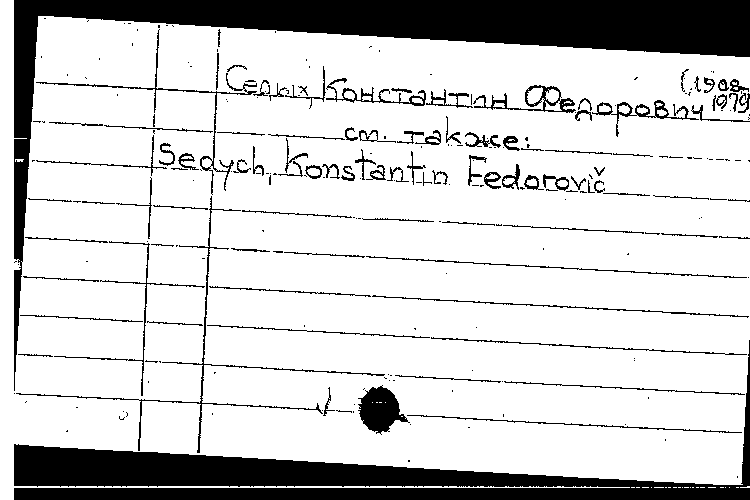 Седых, Константин Федорович (1908
1979
см. также:
Sedych, Konstantin Fedorovič